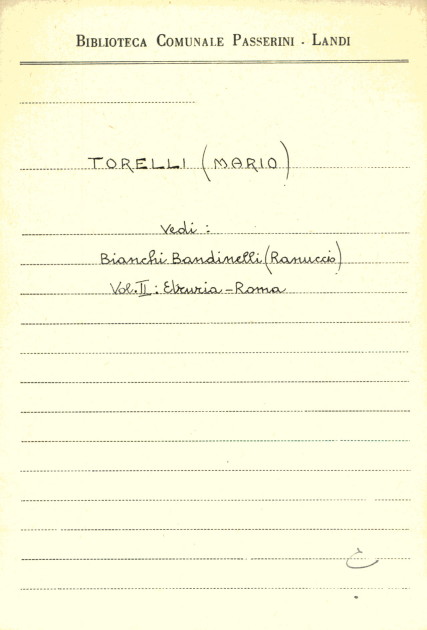 BIBLIOTECA COMUNALE PASSERINI - LANDI
TORELLI (MARIO)
Vedi :
Bianchi Bandinelli (Ranuccio)
Vol. II : Etruria - Roma